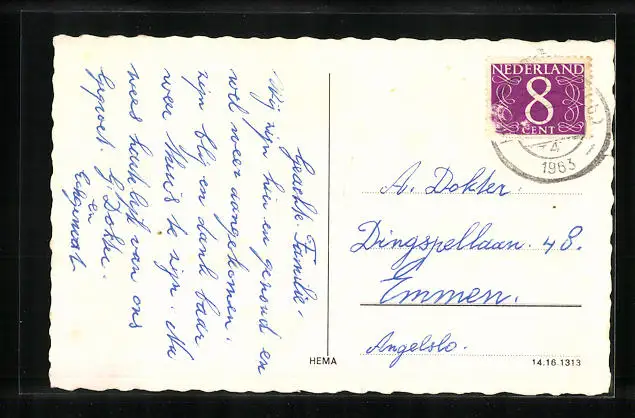 Geachte Familie.
Wij zijn hier en gezond en
wel weer aangekomen.
zijn blij en dank baar
weer thuis te zijn. Na
wees hartelijk van ons
Gegroet. G. Dokter.
en
Echtgenoot
NEDERLAND
8
CENT
4
1963
A. Dokter.
Dingspellaan. 48.
Emmen.
Angelslo.
HEMA
14.16.1313